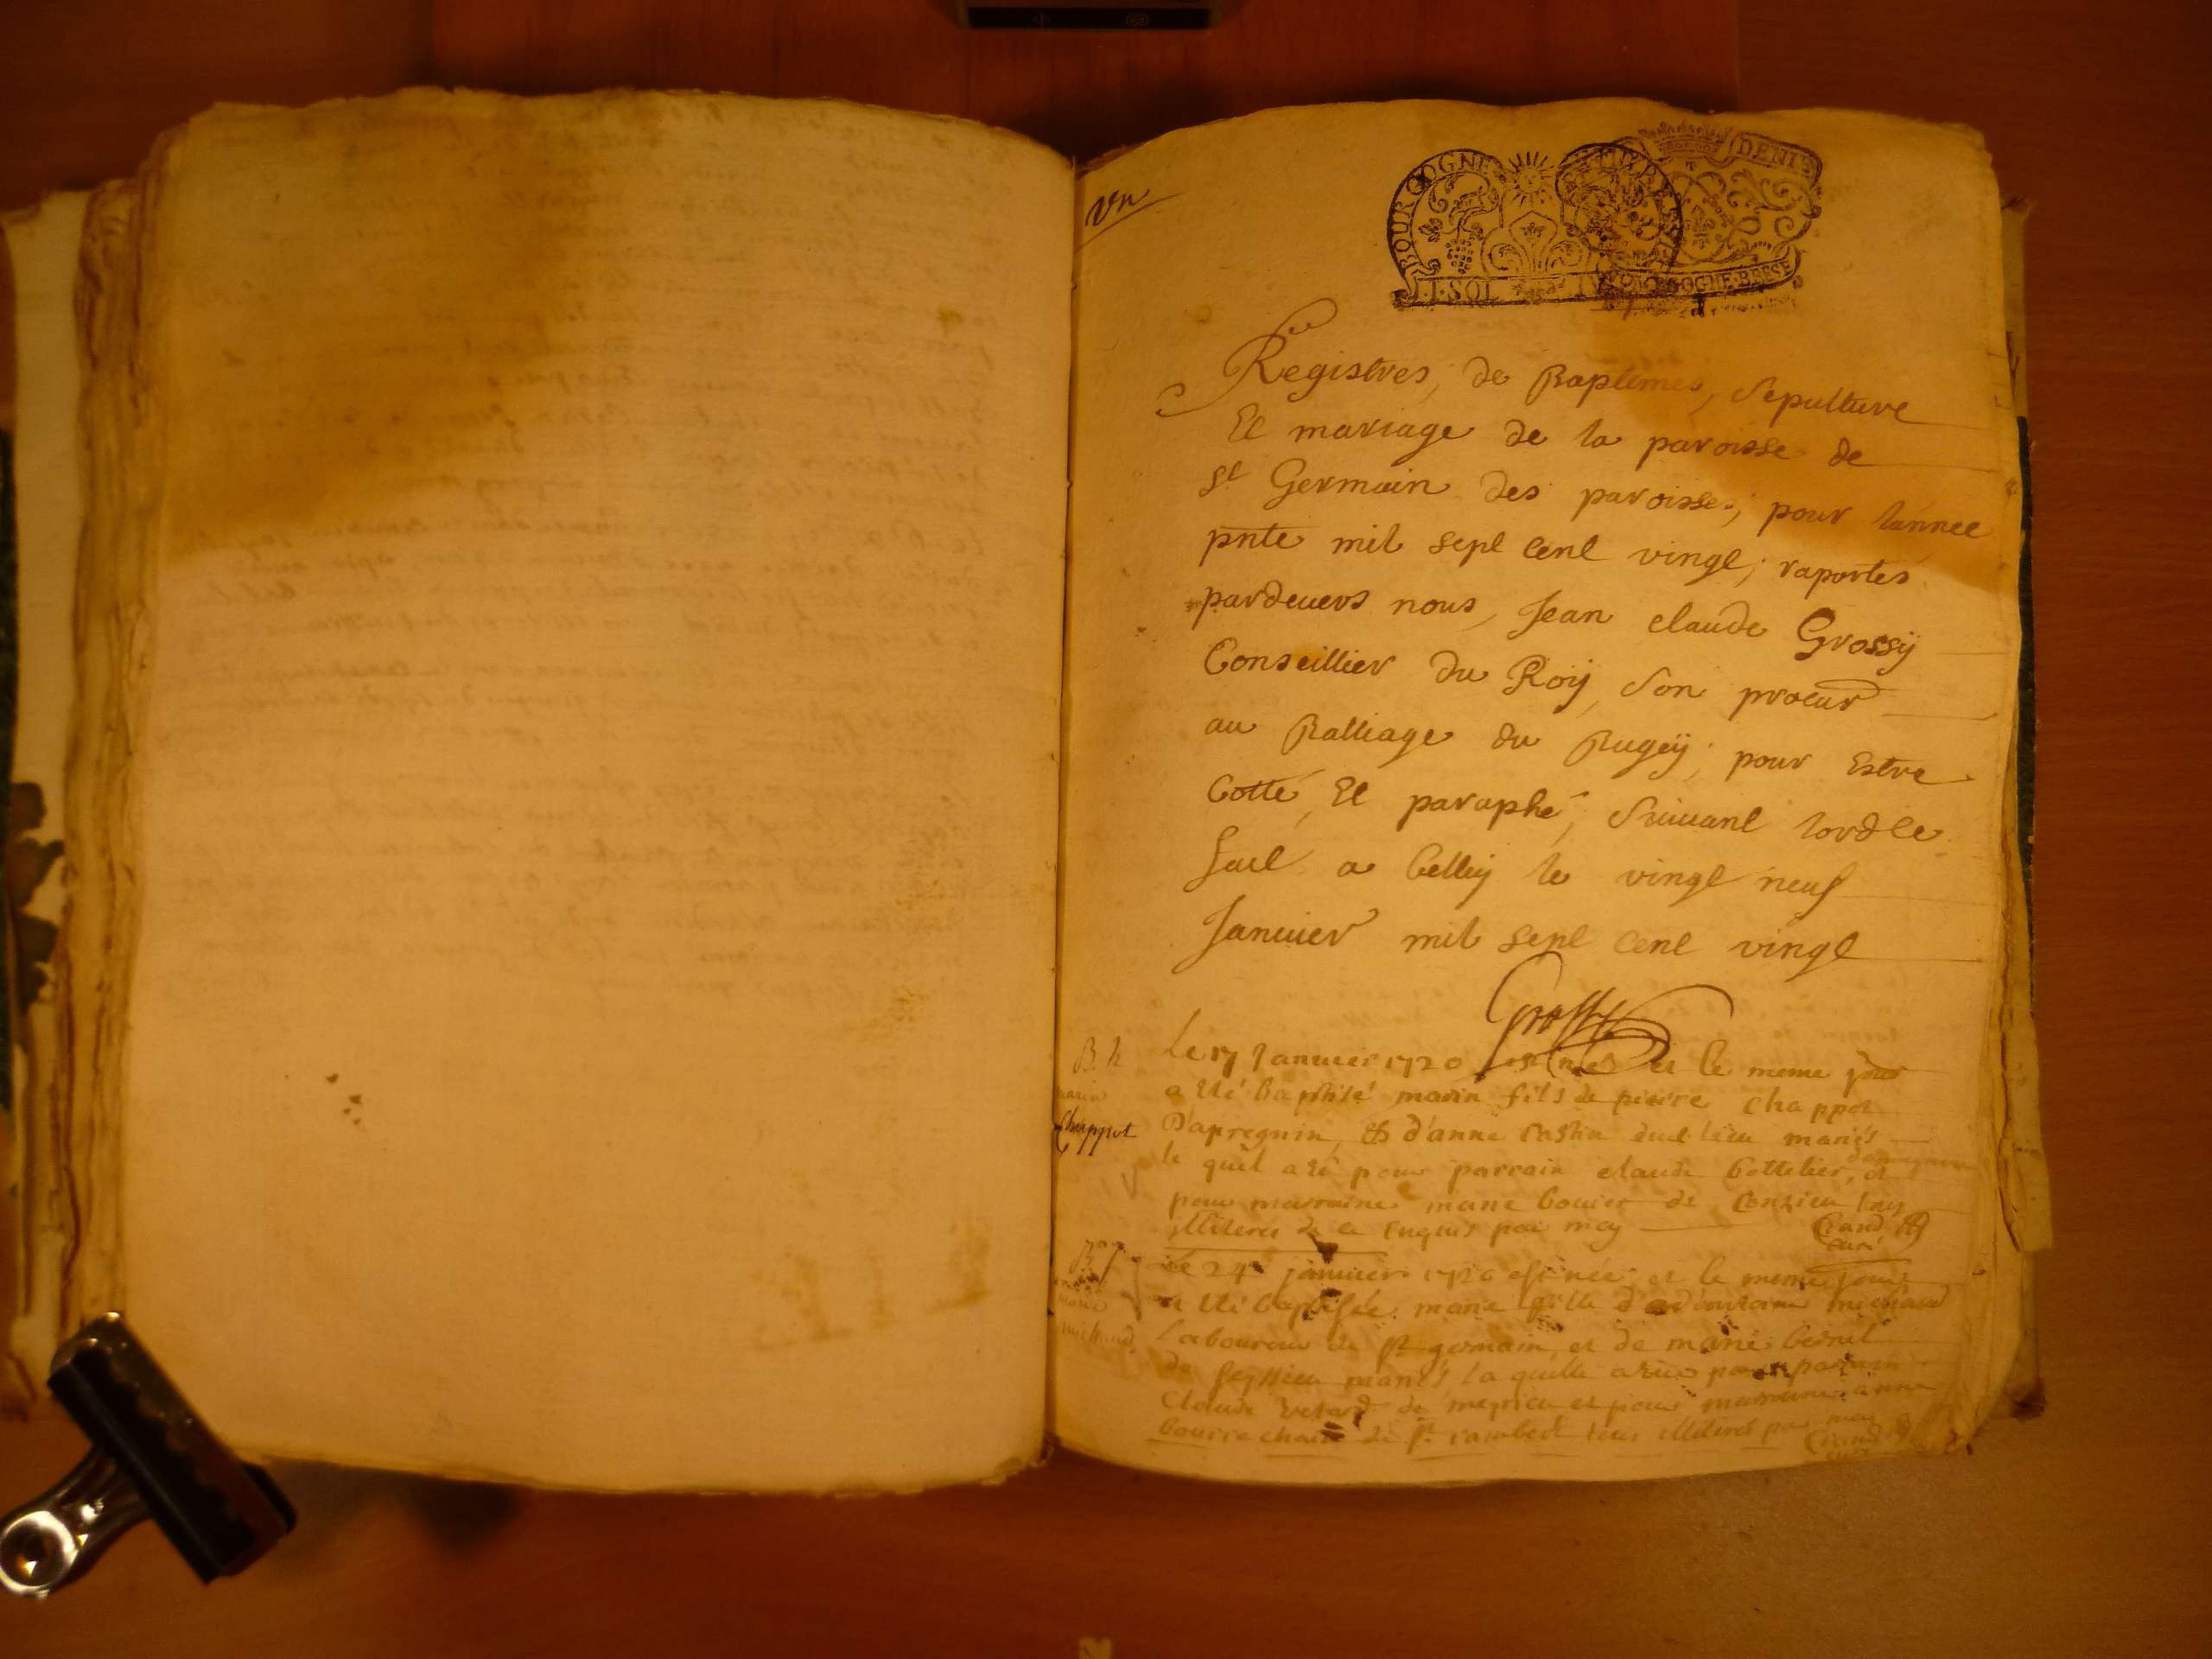 Vn
BOURGOGNE
DENIS
I·SOL
BOURGOGNE·BRESSE
Registres, de Baptemes, Sepulture
Et mariage de la paroisse de
St Germain des paroisses, pour lannee
pnte mil sept cent vingt, raportes
pardeuers nous, Jean claude Grossÿ
Conseillier du Roÿ, son procur
au Balliage du Bugeÿ, pour Estre
Cotté, Et paraphé, Suiuant lordce
fait a belleÿ le vingt neuf
Januier mil sept cent vingt
Grossy
B. h
marin
Chappot
Le 17 Januier 1720 est né et le meme jour
a été baptisé marin fils de pierre chappot
D'apregnin, et d'anne dud lieu mariés
le quel a eü pour parrain claude bottelier, et
pour marraine marie bouier de Conzieu tous
illiterés de ce enquis par moy
curé
B. f
marie
michaud
Le 24e januier 1720 est née et le meme jour
a été baptisée marie fille d'antoine michaud
laboureur de St germain, et de marie
de peyzieu mariés, la quelle a eü pour parrain
Claude de meyrieu et pour marraine anne
de St rambert tous illiterés par moy